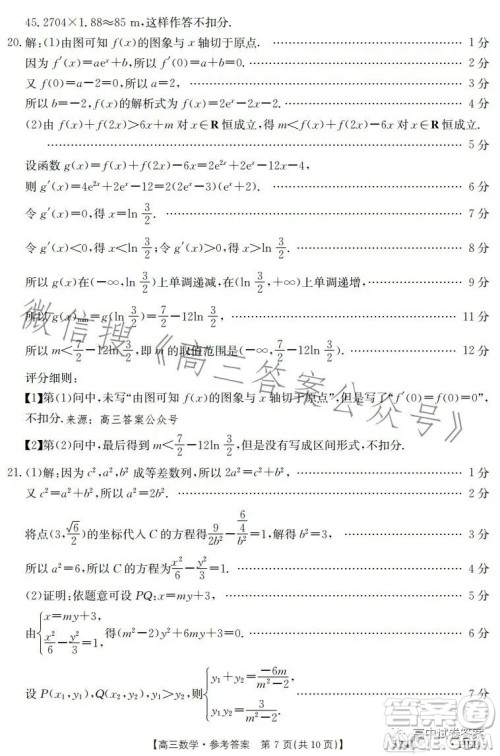 45.2704×1.88≈85 m,这样作答不扣分.
20.解:(1)由图可知 f(x)的图象与 x 轴切于原点. 1分
因为 f′(x)=aeˣ+b,所以 f′(0)=a+b=0. 2分
又 f(0)=a-2=0,所以 a=2, 3分
所以 b=-2,f(x)的解析式为 f(x)=2eˣ-2x-2. 4分
(2)由 f(x)+f(2x)>6x+m 对 x∈R 恒成立,得 m<f(x)+f(2x)-6x 对 x∈R 恒成立.
5分
设函数 g(x)=f(x)+f(2x)-6x=2e²ˣ+2eˣ-12x-4,
则 g′(x)=4e²ˣ+2eˣ-12=2(2eˣ-3)(eˣ+2). 6分
令 g′(x)=0,得 x=ln 3/2. 7分
令 g′(x)<0,得 x<ln 3/2;令 g′(x)>0,得 x>ln 3/2. 8分
所以 g(x)在(-∞,ln 3/2)上单调递减,在(ln 3/2,+∞)上单调递增, 9分
所以 g(x)min=g(ln 3/2)=7/2-12ln 3/2. 11分
所以 m<7/2-12ln 3/2,即 m 的取值范围为(-∞,7/2-12ln 3/2). 12分
评分细则:
【1】第(1)问中,未写“由图可知 f(x)的图象与 x 轴切于原点”,但是写了“f′(0)=f(0)=0”,
不扣分.来源:高三答案公众号
【2】第(2)问中,最后得到 m<7/2-12ln 3/2,但是没有写成区间形式,不扣分.
21.(1)解:因为 c²,a²,b² 成等差数列,所以 2a²=c²+b², 1分
又 c²=a²+b²,所以 a²=2b². 2分
将点(3,√6/2)的坐标代入 C 的方程得 9/2b²-(6/4)/b²=1,解得 b²=3, 3分
所以 a²=6,所以 C 的方程为 x²/6-y²/3=1. 4分
(2)证明:依题意可设 PQ:x=my+3, 5分
由{x=my+3, x²/6-y²/3=1,得(m²-2)y²+6my+3=0. 6分
设 P(x₁,y₁),Q(x₂,y₂),y₁>y₂,则{y₁+y₂=-6m/(m²-2), y₁y₂=3/(m²-2). 7分
【高三数学·参考答案 第 7 页(共 10 页)】
微信搜《高三答案公众号》
高中试卷答案